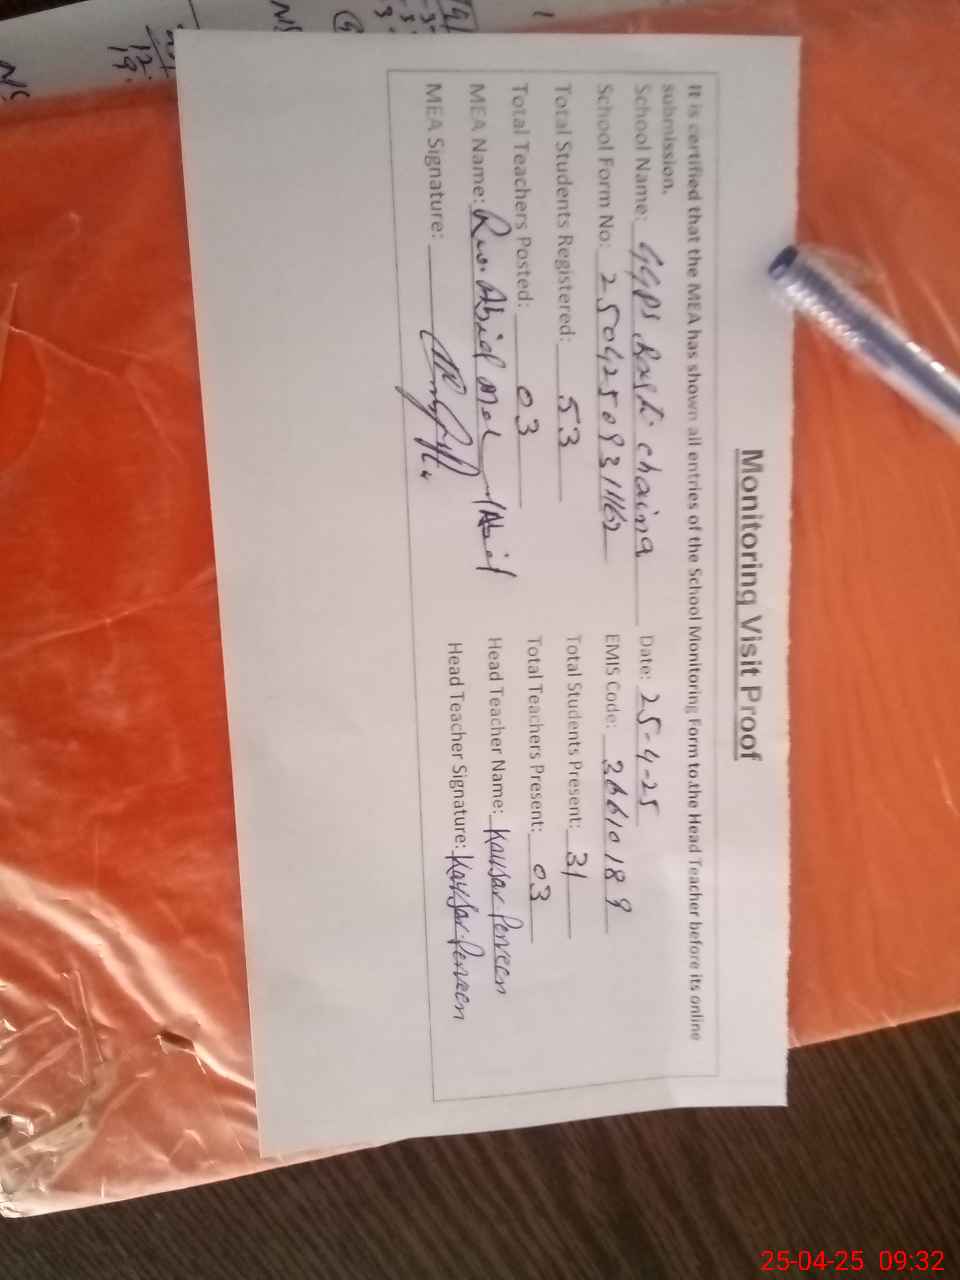 Monitoring Visit Proof
It is certified that the MEA has shown all entries of the School Monitoring Form to the Head Teacher before its online
submission.
School Name: GGPS Basti chaina Date: 25-4-25
School Form No: EMIS Code: 36610189
Total Students Registered: 53 Total Students Present: 31
Total Teachers Posted: 03 Total Teachers Present: 03
MEA Name: Abid Head Teacher Name: Kausar Perveen
MEA Signature: Head Teacher Signature: Kausar Perveen
25-04-25 09:32